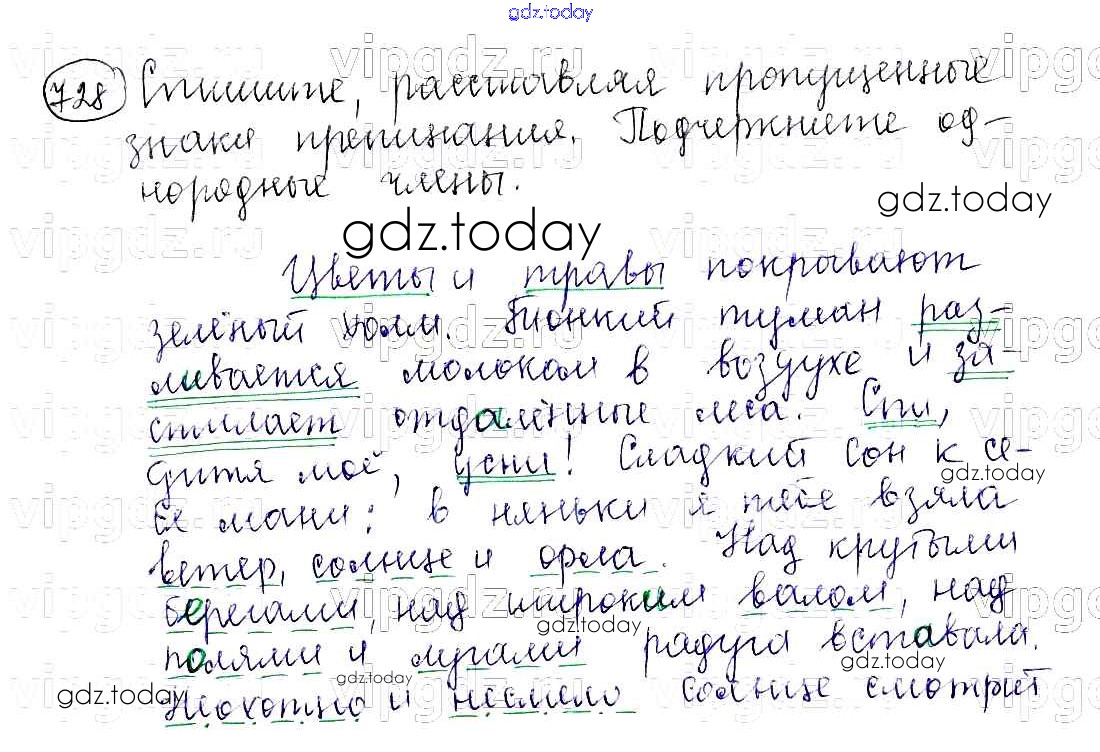 gdz.today
728 Спишите, расставляя пропущенные
знаки препинания. Подчеркните од-
нородные члены.
gdz.today
gdz.today
Цветы и травы покрывают
зелёный холм. Тонкий туман раз-
ливается молоком в воздухе и за-
стилает отдалённые леса. Спи,
дитя моё, усни! Сладкий сон к се-
бе мани: в няньки я тебе взяла
gdz.today
ветер, солнце и орла. Над крутыми
берегами, над широким валом, над
gdz.today
полями и лугами радуга вставала.
gdz.today
gdz.today
gdz.today
Неохотно и несмело солнце смотрит
vipgdz.ru